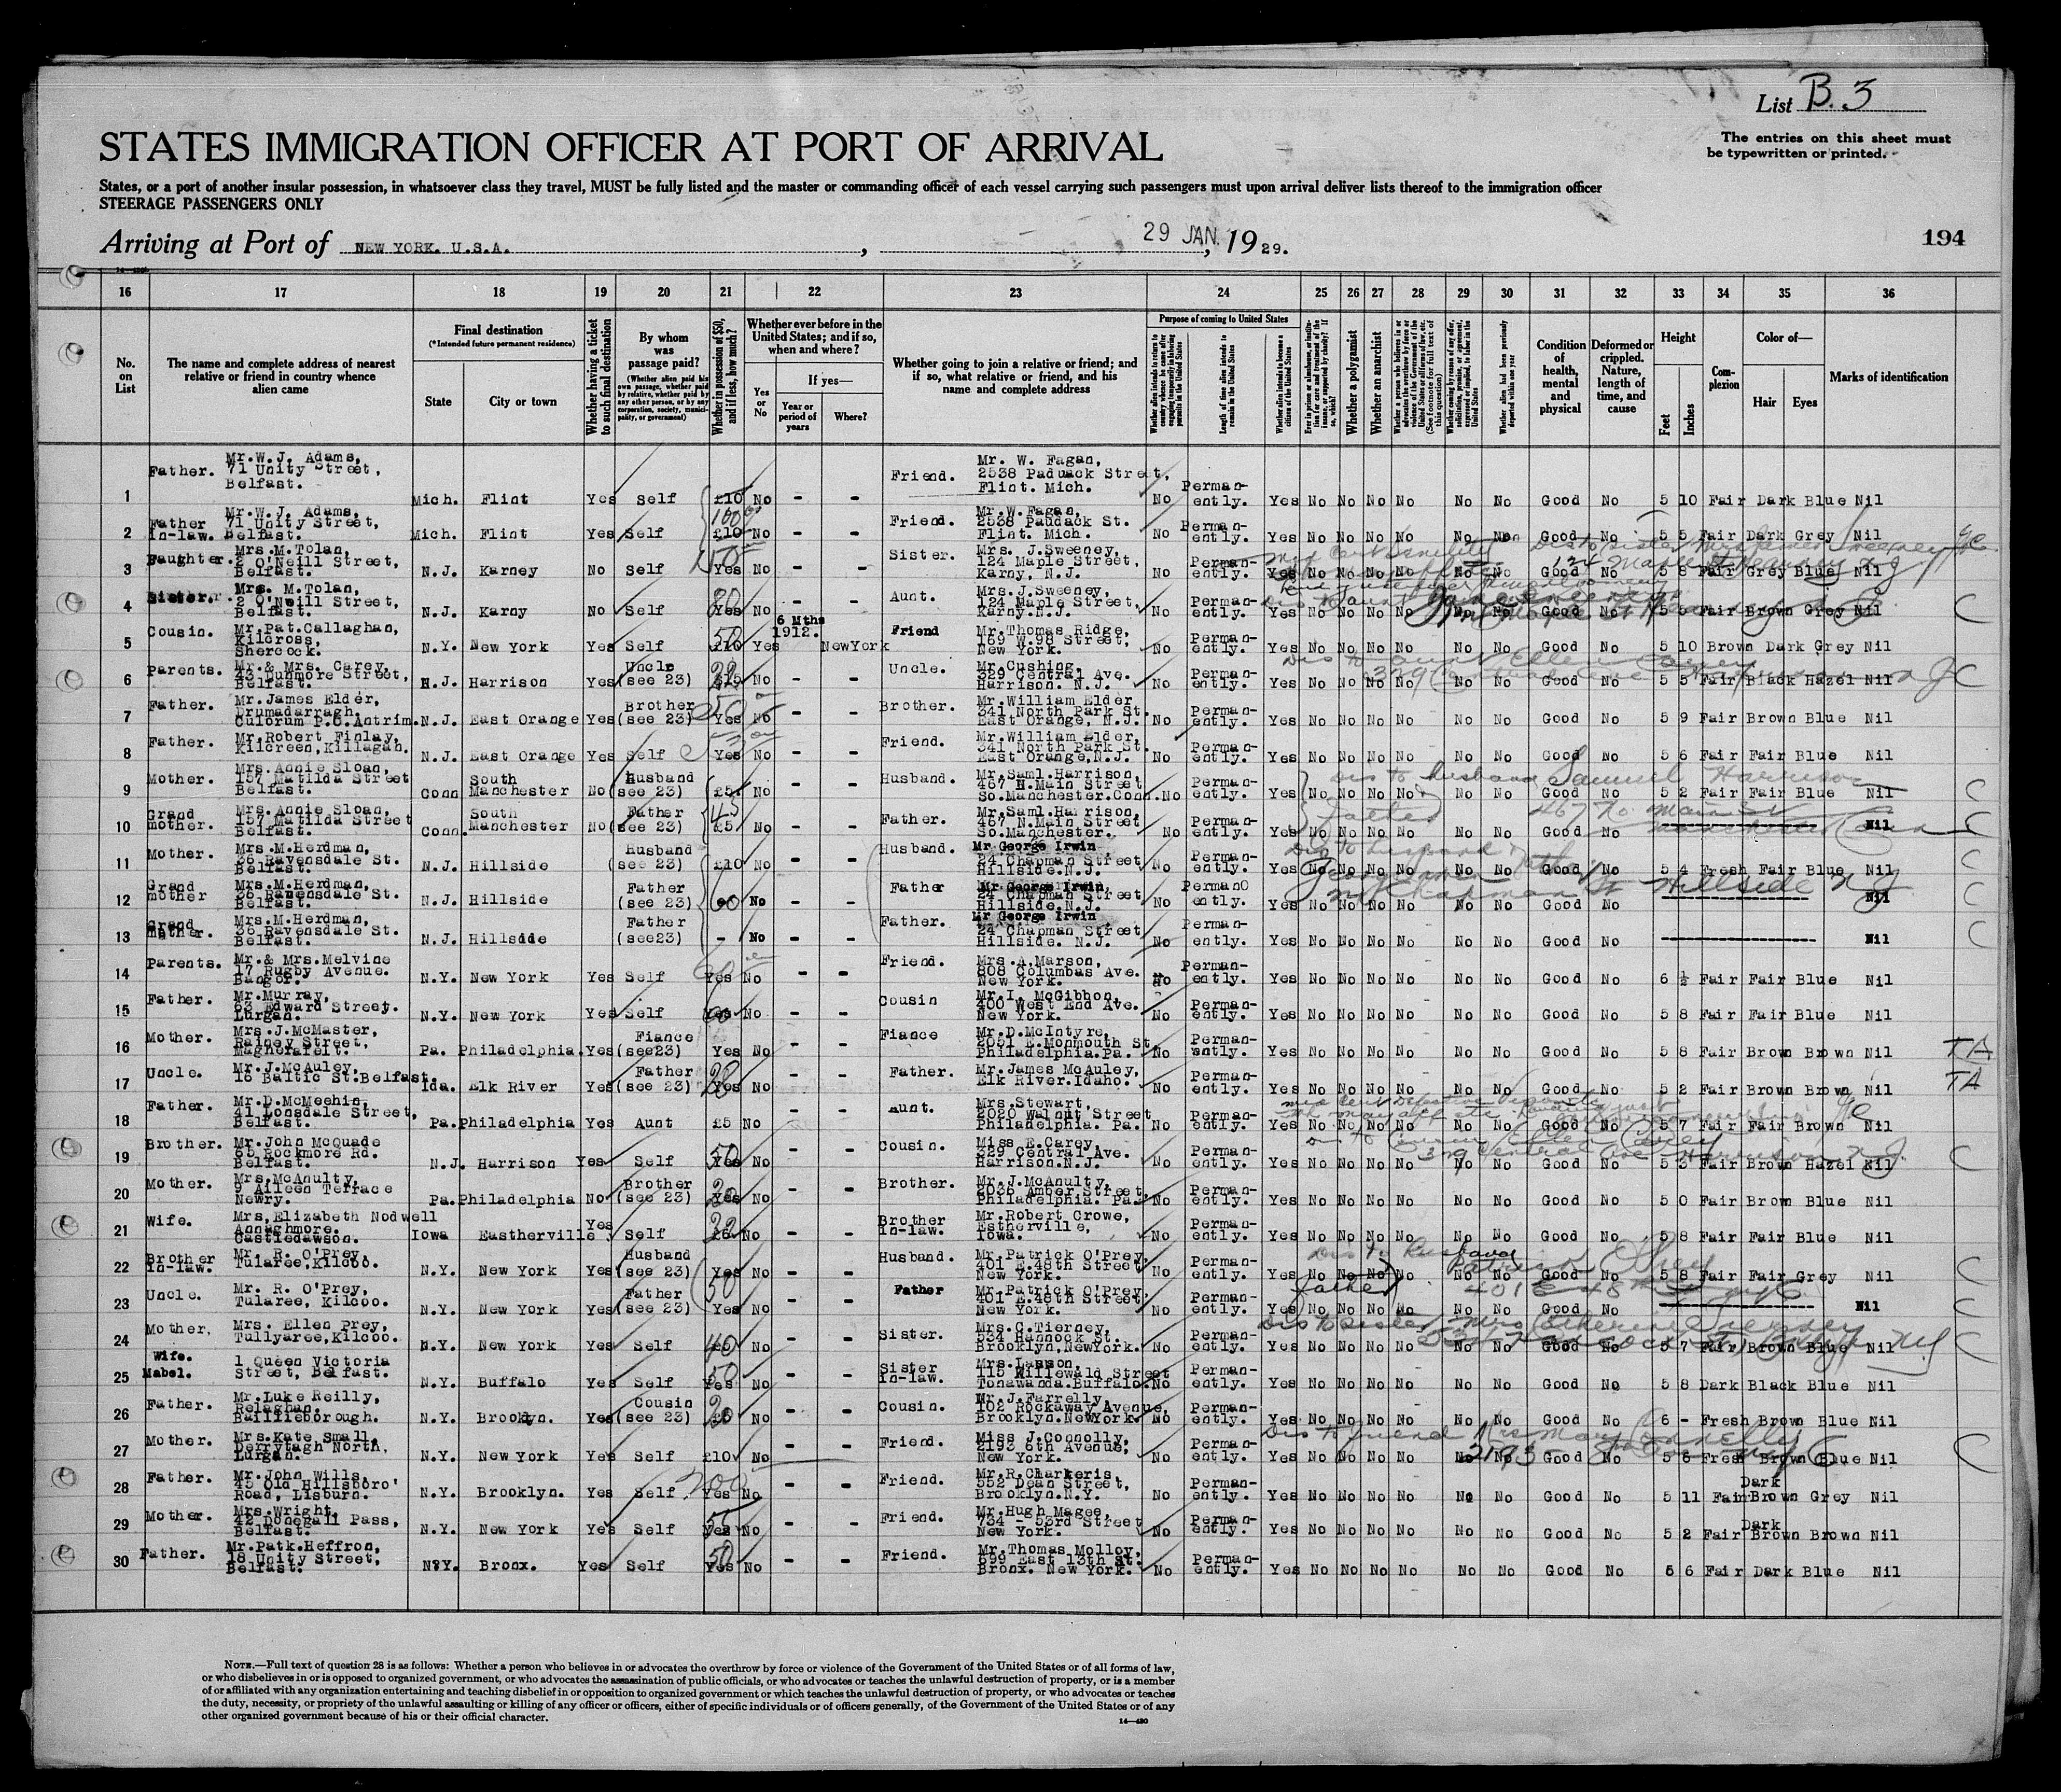 List B.3
STATES IMMIGRATION OFFICER AT PORT OF ARRIVAL
The entries on this sheet must
be typewritten or printed.
States, or a port of another insular possession, in whatsoever class they travel, MUST be fully listed and the master or commanding officer of each vessel carrying such passengers must upon arrival deliver lists thereof to the immigration officer
STEERAGE PASSENGERS ONLY
Arriving at Port of NEW YORK. U.S.A. , 29 JAN. , 1929.
194
16 17 18 19 20 21 22 23 24 25 26 27 28 29 30 31 32 33 34 35 36
No. on List
The name and complete address of nearest relative or friend in country whence alien came
Final destination
(*Intended future permanent residence)
State
City or town
Whether having a ticket to such final destination
By whom was passage paid?
(Whether alien paid his own passage, whether paid by relative, whether paid by any other person, or by any corporation, society, municipality, or government)
Whether in possession of $50, and if less, how much?
Whether ever before in the United States; and if so, when and where?
Yes or No
If yes—
Year or period of years
Where?
Whether going to join a relative or friend; and if so, what relative or friend, and his name and complete address
Purpose of coming to United States
Length of time alien intends to remain in the United States
Whether alien intends to become a citizen of the United States
Whether a polygamist
Whether an anarchist
Condition of health, mental and physical
Deformed or crippled. Nature, length of time, and cause
Height
Feet
Inches
Complexion
Color of—
Hair
Eyes
Marks of identification
1 Father. Mr.W.J. Adams, 71 Unity Street, Belfast. Mich. Flint Yes Self £10 No - - Friend. Mr. W. Fagan, 2538 Paduack Street, Flint. Mich. No Permanently. Yes No No No No No No Good No 5 10 Fair Dark Blue Nil
2 Father In-law. Mr.W.J. Adams, 71 Unity Street, Belfast. Mich. Flint Yes Self £10 100 No - - Friend. Mr.W.Fagan, 2538 Paudack St. Flint. Mich. No Permanently. Yes No No No No No No Good No 5 5 Fair Dark Grey Nil
3 Daughter. Mrs.M.Tolan, 2 O'Neill Street, Belfast. N.J. Karney No Self Yes 150 No - - Sister. Mrs. J.Sweeney, 124 Maple Street, Karny, N.J. No Permanently. Yes No No No No No No Good No 5 8 Fair Grey Blue Nil
4 Sister. Mrs. M.Tolan, 2 O'Neill Street, Belfast. N.J. Karny No Self Yes 80 No - - Aunt. Mrs.J.Sweeney, 124 Maple Street, Karny.N.J. No Permanently. Yes No No No No No No Good No 5 5 Fair Brown Grey Nil C
5 Cousin. Mr.Pat.Callaghan, Kilcross, Shercock. N.Y. New York Yes Self £10 50 Yes 6 Mths 1912. NewYork Friend Mr.Thomas Ridge, 169 W.98 Street, New York. No Permanently. Yes No No No No No No Good No 5 10 Brown Dark Grey Nil
6 Parents. Mr.& Mrs. Carey, 43 Dunmore Street, Belfast. N.J. Harrison Yes Uncle (see 23) No - - Uncle. Mr.Cushing, 329 Central Ave. Harrison. N.J. No Permanently. Yes No No No No No No Good No 5 5 Fair Black Hazel Nil C
7 Father. Mr.James Elder, Drumadarragh, Culorum P.O.Antrim. N.J. East Orange Yes Brother (see 23) Yes 50 No - - Brother. Mr.William Elder, 341 North Park St. East Orange, N.J. No Permanently. Yes No No No No No No Good No 5 9 Fair Brown Blue Nil
8 Father. Mr.Robert Finlay, Kilcreen,Killagan. N.J. East Orange Yes Self Yes No - - Friend. Mr.William Elder, 341 North Park St. East Orange,N.J. No Permanently. Yes No No No No No No Good No 5 6 Fair Fair Blue Nil
9 Mother. Mrs.Annie Sloan, 157 Matilda Street Belfast. Conn South Manchester No Husband (see 23) £5. No - - Husband. Mr.Saml.Harrison, 467 N.Main Street So.Manchester.Conn. No Permanently. Yes No No No No No No Good No 5 2 Fair Fair Blue Nil C
Dis to husband Samuel Harrison
10 Grand mother. Mrs.Annie Sloan, 157 Matilda Street Belfast. Conn. South Manchester No Father (see 23) £5 45 No - - Father. Mr.Saml.Harrison, 467 N.Main Street So.Manchester. No Permanently. Yes No No No No No No Good No Nil C
father 467 No Main St Manchester Conn
11 Mother. Mrs.M.Herdman, 36 Ravensdale St. Belfast. N.J. Hillside Husband (see 23) £10 No - - Husband. Mr George Irwin 24 Chapman Street Hillside.N.J. No Permanently. Yes No No No No No No Good No 5 4 Fresh Fair Blue Nil C
Dis to husband
12 Grand mother Mrs.M.Herdman, 36 Ravensdale St. Belfast. N.J. Hillside Father (see 23) 60 No - - Father Mr George Irwin, 24 Chapman Street Hillside.N.J. No PermanOently. Yes No No No No No No Good No Nil C
Chapman St Hillside N J
13 Grand mother. Mrs.M.Herdman, 36 Ravensdale St. Belfast. N.J. Hillsdde Father (see23) - No - - Father. Mr George Irwin 24 Chapman Street Hillside. N.J. No Permanently. Yes No No No No No No Good No Nil C
14 Parents. Mr.& Mrs.Melvine 17 Rugby Avenue. Bangor. N.Y. New York Yes Self Yes No - - Friend. Mrs.A.Marson, 808 Columbas Ave. New York. No Permanently. Yes No No No No No No Good No 6 ½ Fair Fair Blue Nil
15 Father. Mr.Murray, 63 Edward Street. Lurgan. N.Y. New York Yes Self No - - Cousin Mr.I. McGibbon, 400 West End Ave. New York. No Permanently. Yes No No No No No No Good No 5 8 Fair Fair Blue Nil
16 Mother. Mrs.J.McMaster, Rainey Street, Magherafelt. Pa. Philadelphia. Yes Fiance (see23) Yes No - - Fiance Mr.D.McIntyre, 2051 E.Monmouth St. Philadelphia.Pa. No Permanently. Yes No No No No No No Good No 5 8 Fair Brown Brown Nil TA
17 Uncle. Mr.J.McAuley, 16 Baltic St.Belfast. Ida. Elk River Yes Father (see 23) Yes 28 No - - Father. Mr.James McAuley, Elk River.Idaho. No Permanently. Yes No No No No No No Good No 5 2 Fair Brown Brown Nil TA
18 Father. Mr.D.McMeehin, 41 Lonsdale Street, Belfast. Pa. Philadelphia Yes Aunt £5 No - - Aunt. Mrs.Stewart, 2020 Walnut Street Philadelphia. Pa. No Permanently. Yes No No No No No No Good No 5 7 Fair Fair Brown Nil
19 Brother. Mr.John McQuade 65 Rockmore Rd. Belfast. N.J. Harrison Yes Self Yes 50 No - - Cousin. Miss E.Carey, 329 Central Ave. Harrison.N.J. No Permanently. Yes No No No No No No Good No 5 3 Fair Brown Hazel Nil C
Dis to Cousin Ellen Carey 329 Central Ave Harrison N J.
20 Mother. Mrs.McAnulty, 9 Aileen Terrace Newry. Pa. Philadelphia No Brother (see 23) Yes 20 No - - Brother. Mr.J.McAnulty, 2036 Amber Street, Philadelphia. Pa. No Permanently. Yes No No No No No No Good No 5 0 Fair Brown Blue Nil
21 Wife. Mrs.Elizabeth Nodwell Annaghmore, Castledawson. Iowa Eastherville Yes Self No - - Brother In-law. Mr.Robert Crowe, Estherville, Iowa. No Permanently. Yes No No No No No No Good No 5 8 Fair Fair Blue Nil
22 Brother In-law. Mr. R. O'Prey, Tularee,Kilcoo. N.Y. New York Yes Husband (see 23) Yes No - - Husband. Mr.Patrick O'Prey, 401 E.48th Street, New York. No Permanently. Yes No No No No No No Good No 5 8 Fair Fair Grey Nil C
Dis to Husband Patrick O'Prey
23 Uncle. Mr. R. O'Prey, Tularee, Kilcoo. N.Y. New York Yes Father (see 23) Yes 50 No - - Father Mr.Patrick O'Prey, 401 E.48th Street, New York. No Permanently. Yes No No No No No No Good No Nil C
father 401 E 48th St NYC
24 Mother. Mrs. Ellen Prey, Tullyaree,Kilcoo. N.Y. New York Yes Self 40 No - - Sister. Mrs.C.Tierney, 534 Hannock St. Brooklyn,NewYork. No Permanently. Yes No No No No No No Good No 5 7 Fair Brown Blue Nil C
Dis to Sister Mrs Catherine Tierney
25 Wife. Mabel. 1 Queen Victoria Street, Belfast. N.Y. Buffalo Yes Self Yes 50 No - - Sister In-law. Mrs.Lawson, 115 Willewald Street Tonawanda.Buffalo. No Permanently. Yes No No No No No No Good No 5 8 Dark Black Blue Nil
26 Father. Mr.Luke Reilly, Relaghan, Baillieborough. N.Y. Brooklyn. Yes Cousin (see 23) 20 No - - Cousin. Mr.J.Farrelly, 102 Rockaway Avenue, Brooklyn.NewYork. No Permanently. Yes No No No No No No Good No 6 - Fresh Brown Blue Nil
27 Mother. Mrs.Kate Small, Derrytagh North, Lurgan. N.Y. New York Yes Self £10 No - - Friend. Miss J.Connolly, 2193 8th Avenue, New York. No Permanently. Yes No No No No No No Good No 5 6 Fresh Brown Blue Nil C
Dis to friend Mrs Mary Connelly 2193 8th Ave NYC
28 Father. Mr.John Wills, 45 Old Hillsboro' Road, Lisburn. N.Y. Brooklyn. Yes Self Yes 200 No - - Friend. Mr.R.Charkeris, 552 Dean Street, Brooklyn.N.Y. No Permanently. Yes No No No No No No Good No 5 11 Fair Dark Brown Grey Nil
29 Mother. Mrs.Wright, 42 Donegall Pass, Belfast. N.Y. New York Yes Self Yes No - - Friend. Mr.Hugh Magee, 734 - 53rd Street New York. No Permanently. Yes No No No No No No Good No 5 2 Fair Dark Brown Brown Nil
30 Father. Mr.Patk.Heffron, 18 Unity Street, Belfast. N.Y. Bronx. Yes Self Yes 50 No - - Friend. Mr.Thomas Molloy, 699 East 13th St. Bronx. New York. No Permanently. Yes No No No No No No Good No 5 6 Fair Dark Blue Nil
NOTE.—Full text of question 28 is as follows: Whether a person who believes in or advocates the overthrow by force or violence of the Government of the United States or of all forms of law,
or who disbelieves in or is opposed to organized government, or who advocates the assassination of public officials, or who advocates or teaches the unlawful destruction of property, or is a member
of or affiliated with any organization entertaining and teaching disbelief in or opposition to organized government or which teaches the unlawful destruction of property, or who advocates or teaches
the duty, necessity, or propriety of the unlawful assaulting or killing of any officer or officers, either of specific individuals or of officers generally, of the Government of the United States or of any
other organized government because of his or their official character.
14—430